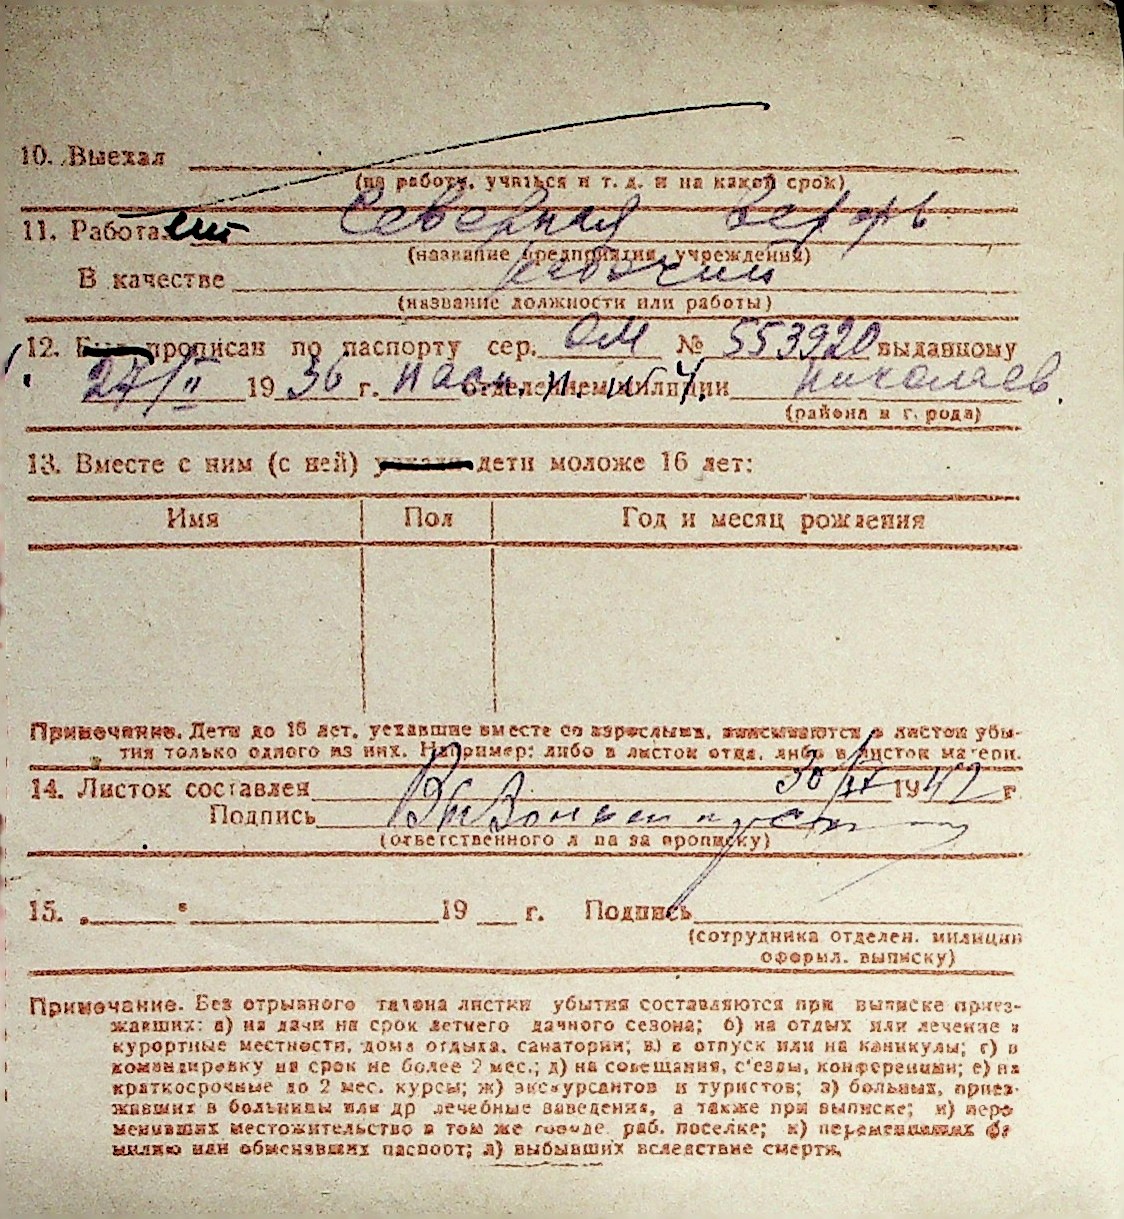 10. Выехал
(на работу, учиться и т. д. и на какой срок)
11. Работает Северная верфь
(название предприятия, учреждения)
В качестве рабочий
(название должности или работы)
12. прописан по паспорту сер. ОМ № 553920 выданному
27/II 1936 г. отделением милиции Николаев.
(района и города)
13. Вместе с ним (с ней) дети моложе 16 лет:
Имя Пол Год и месяц рождения
Примечание. Дети до 16 лет, уехавшие вместе со взрослыми, вписываются в листок убы-
тия только одного из них. Например: либо в листок отца, либо в листок матери.
14. Листок составлен 30/ 1942 г.
Подпись
(ответственного лица за прописку)
15. „ " 19 г. Подпись
(сотрудника отделен. милиции
оформл. выписку)
Примечание. Без отрывного талона листки убытия составляются при выписке приез-
жавших: а) на дачи на срок летнего дачного сезона; б) на отдых или лечение в
курортные местности, дома отдыха, санатории; в) в отпуск или на каникулы; г) в
командировку на срок не более 2 мес.; д) на совещания, с'езды, конференции; е) на
краткосрочные до 2 мес. курсы; ж) экскурсантов и туристов; з) больных, приез-
жавших в больницы или др лечебные заведения, а также при выписке; и) пере
менивших местожительство в том же городе, раб. поселке; к) переменивших фа
милию или обменявших паспорт; л) выбывших вследствие смерти.